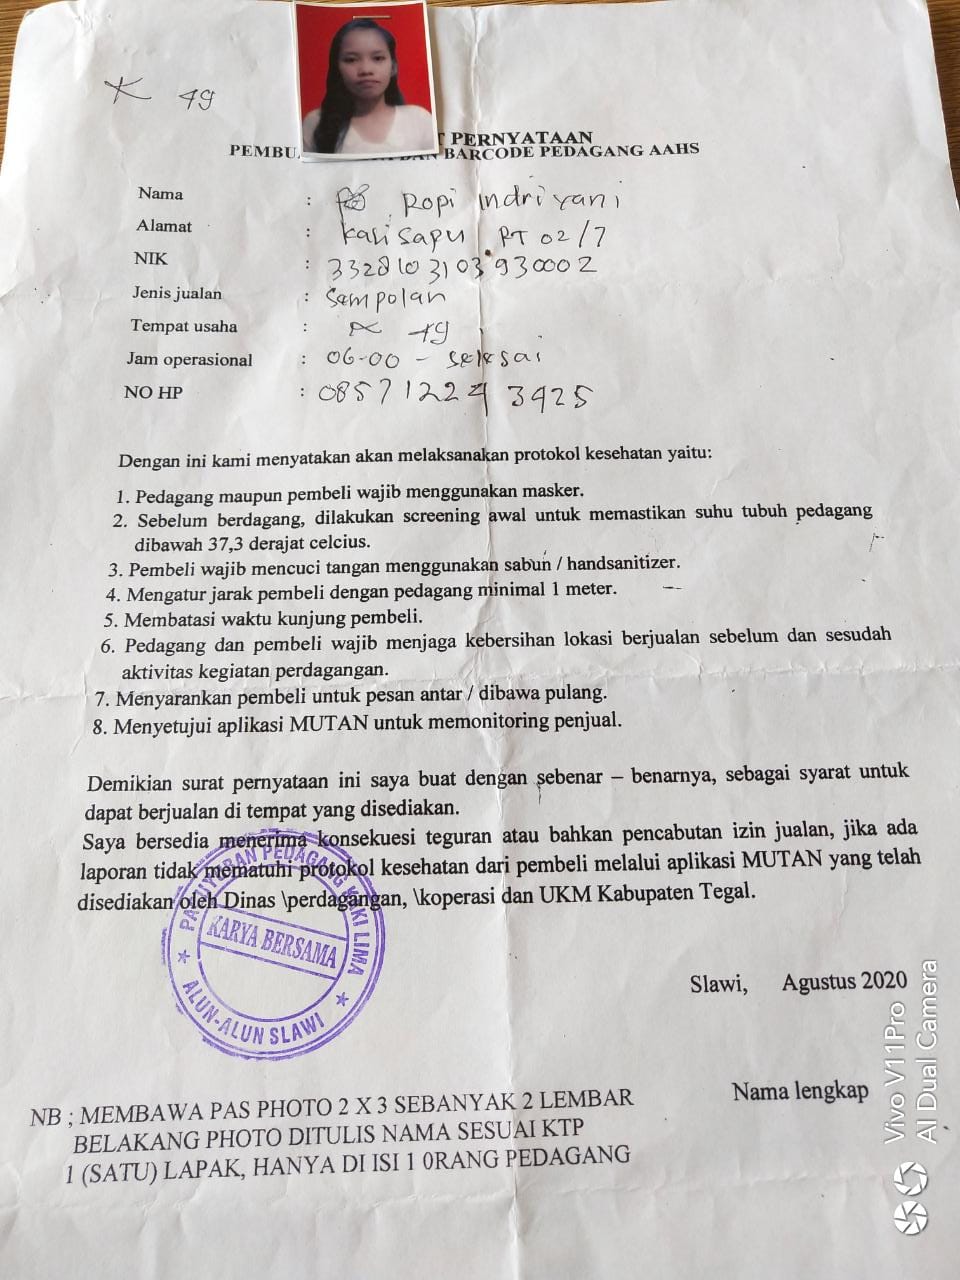 K 49
T PERNYATAAN
PEMBU DAN BARCODE PEDAGANG AAHS
Nama : Ropi indriyani
Alamat : kalisapu RT 02/7
NIK : 3328103103930002
Jenis jualan : Sempolan
Tempat usaha : K 49
Jam operasional : 06-00 - selesai
NO HP : 085712243425
Dengan ini kami menyatakan akan melaksanakan protokol kesehatan yaitu:
1. Pedagang maupun pembeli wajib menggunakan masker.
2. Sebelum berdagang, dilakukan screening awal untuk memastikan suhu tubuh pedagang
dibawah 37,3 derajat celcius.
3. Pembeli wajib mencuci tangan menggunakan sabun / handsanitizer.
4. Mengatur jarak pembeli dengan pedagang minimal 1 meter.
5. Membatasi waktu kunjung pembeli.
6. Pedagang dan pembeli wajib menjaga kebersihan lokasi berjualan sebelum dan sesudah
aktivitas kegiatan perdagangan.
7. Menyarankan pembeli untuk pesan antar / dibawa pulang.
8. Menyetujui aplikasi MUTAN untuk memonitoring penjual.
Demikian surat pernyataan ini saya buat dengan sebenar – benarnya, sebagai syarat untuk
dapat berjualan di tempat yang disediakan.
Saya bersedia menerima konsekuesi teguran atau bahkan pencabutan izin jualan, jika ada
laporan tidak mematuhi protokol kesehatan dari pembeli melalui aplikasi MUTAN yang telah
disediakan oleh Dinas \perdagangan, \koperasi dan UKM Kabupaten Tegal.
PAGUYUBAN PEDAGANG KAKI LIMA
KARYA BERSAMA
ALUN-ALUN SLAWI
Slawi, Agustus 2020
Nama lengkap
NB ; MEMBAWA PAS PHOTO 2 X 3 SEBANYAK 2 LEMBAR
BELAKANG PHOTO DITULIS NAMA SESUAI KTP
1 (SATU) LAPAK, HANYA DI ISI 1 0RANG PEDAGANG
Vivo V11Pro
AI Dual Camera